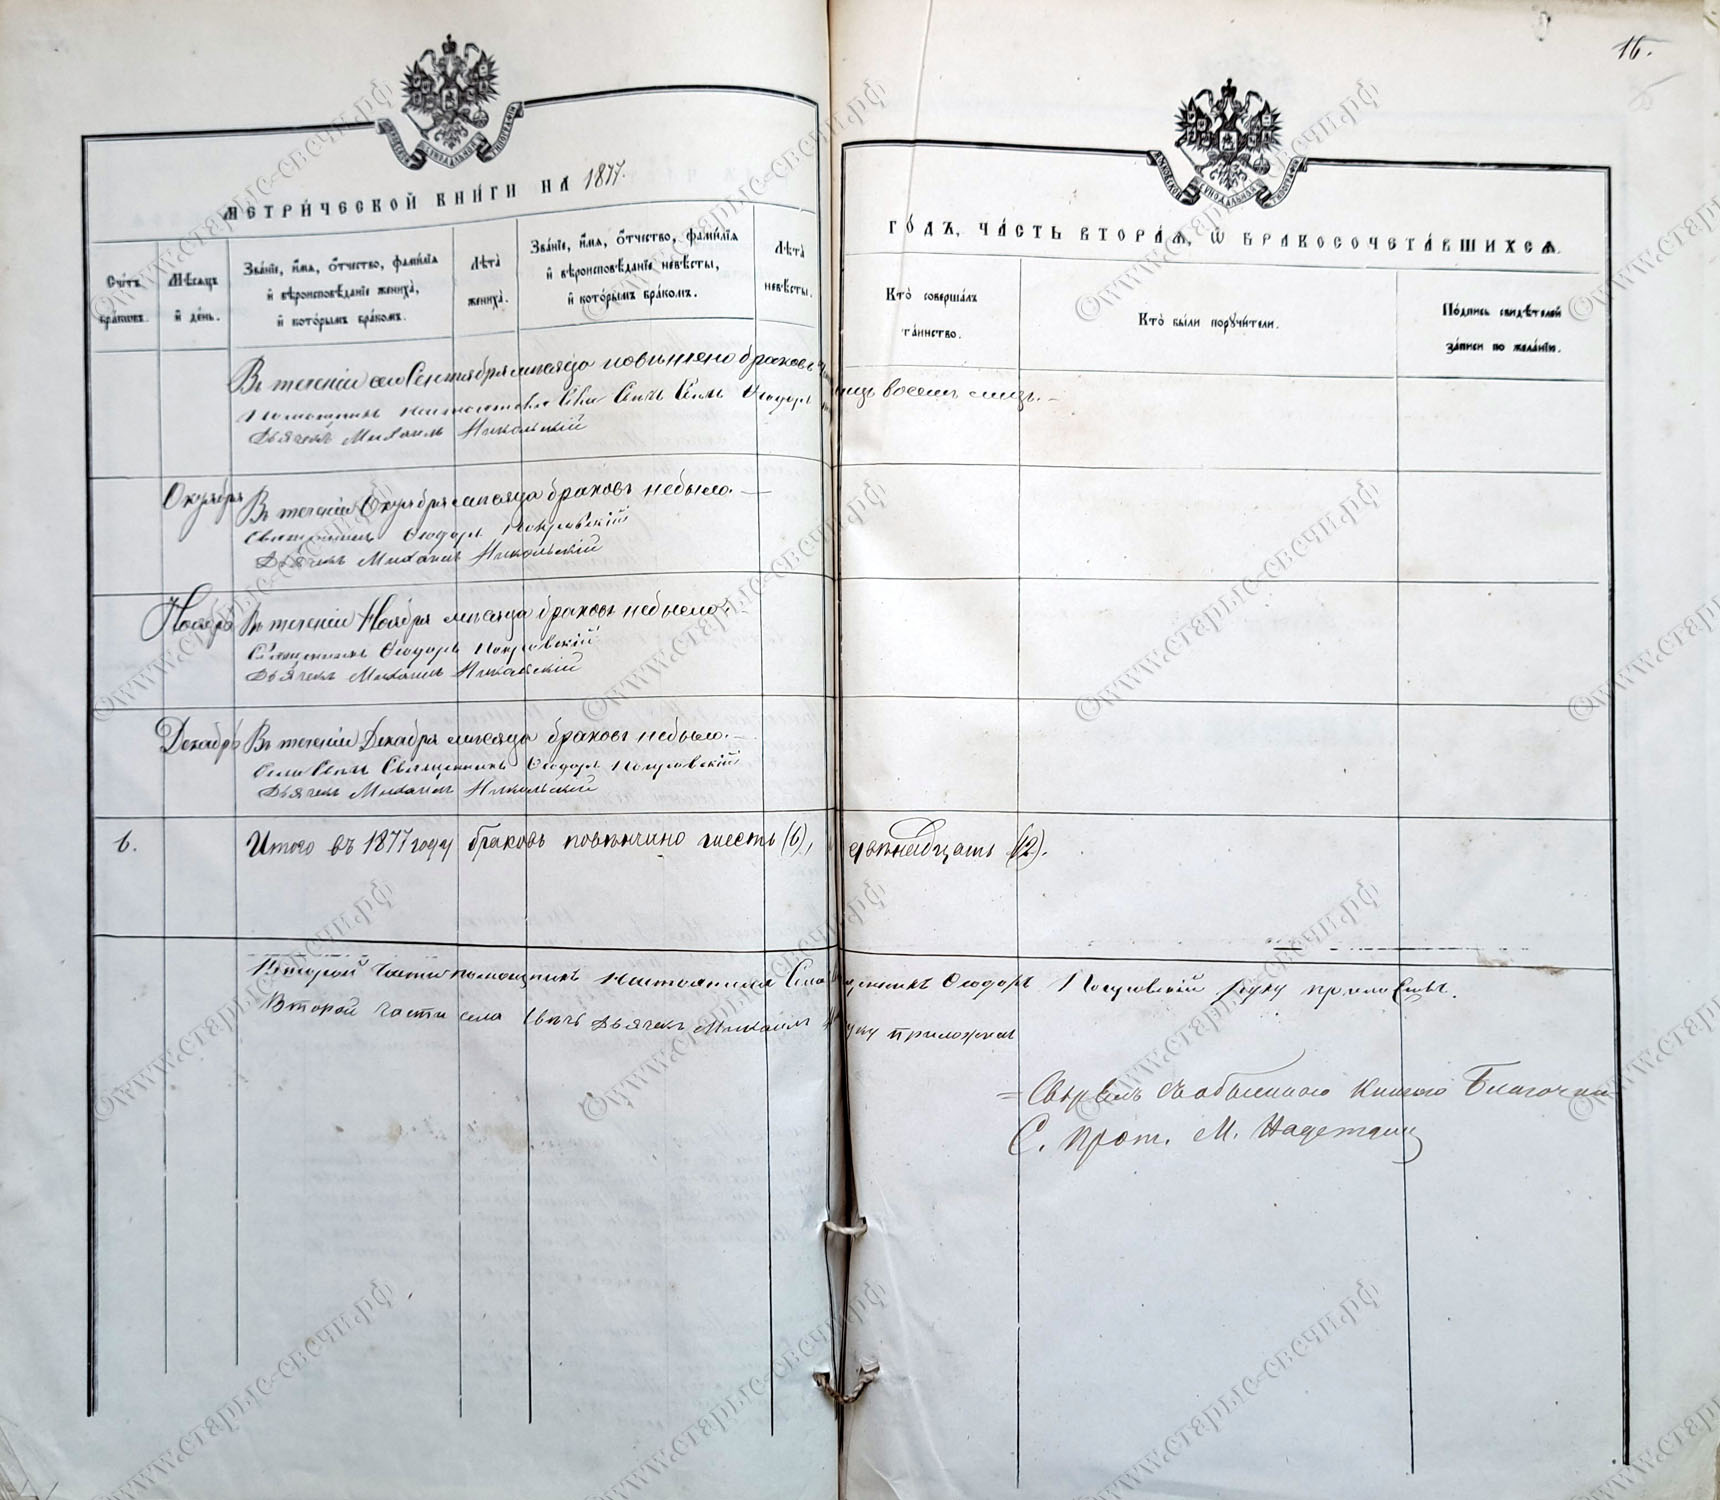 16.
МЕТРИ́ЧЕСКОЙ КНИ́ГИ НА 1877.
ГО́ДЪ, ЧА́СТЬ ВТОРА́Ѧ, Ѡ БРАКОСОЧЕТА́ВШИХСѦ.
Сче́тъ бра́ковъ.
Мѣ́сѧцъ и де́нь.
Зва́нїе, и҆́мѧ, ѻ҆́тчество, фамѝлїѧ и҆ вѣроисповѣ́данїе жениха̀, и҆ кото́рымъ бра́комъ.
Лѣта̀ жениха̀.
Зва́нїе, и҆́мѧ, ѻ҆́тчество, фамѝлїѧ и҆ вѣроисповѣ́данїе невѣ́сты, и҆ кото́рымъ бра́комъ.
Лѣта̀ невѣ́сты.
Кто̀ соверша́лъ та́инство.
Кто̀ бы́ли порꙋчи́тели.
По́дпись свидѣ́телей за́писи по жела́нїю.
Въ теченіи Сентября мѣсяца повѣнчено браковъ восемь лицъ.
Помощникъ настоятеля Ѳеодоръ
Дьячекъ Михаилъ Никольскій
Октябрь Въ теченіи Октября мѣсяца браковъ небыло. —
Священникъ Ѳеодоръ Покровскій
Дьячекъ Михаилъ Никольскій
Ноябрь Въ теченіи Ноября мѣсяца браковъ небыло. —
Священникъ Ѳеодоръ Покровскій
Дьячекъ Михаилъ Никольскій
Декабрь Въ теченіи Декабря мѣсяца браковъ небыло. —
Священникъ Ѳеодоръ Покровскій
Дьячекъ Михаилъ Никольскій
6. Итого въ 1877 году браковъ повѣнчано шесть (6), двѣнадцать (12).
Второй части помощникъ настоятеля Ѳеодоръ Покровскій руку приложилъ.
Второй части села Дьячекъ Михаилъ приложилъ
= Свѣрялъ съ обыскною книгою Благочин
С. Прот. М. Надеждин
©www.старыс-свсчи.рф